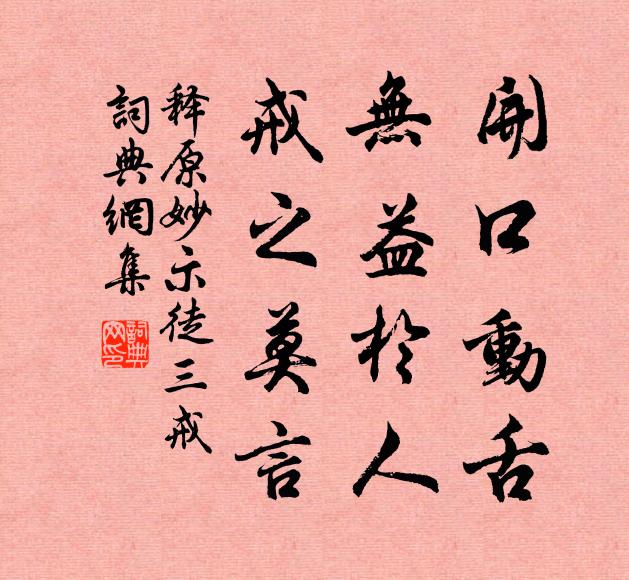 開口動舌
無益於人
戒之莫言
释原妙示徒三戒
詞典網集
詞典网印